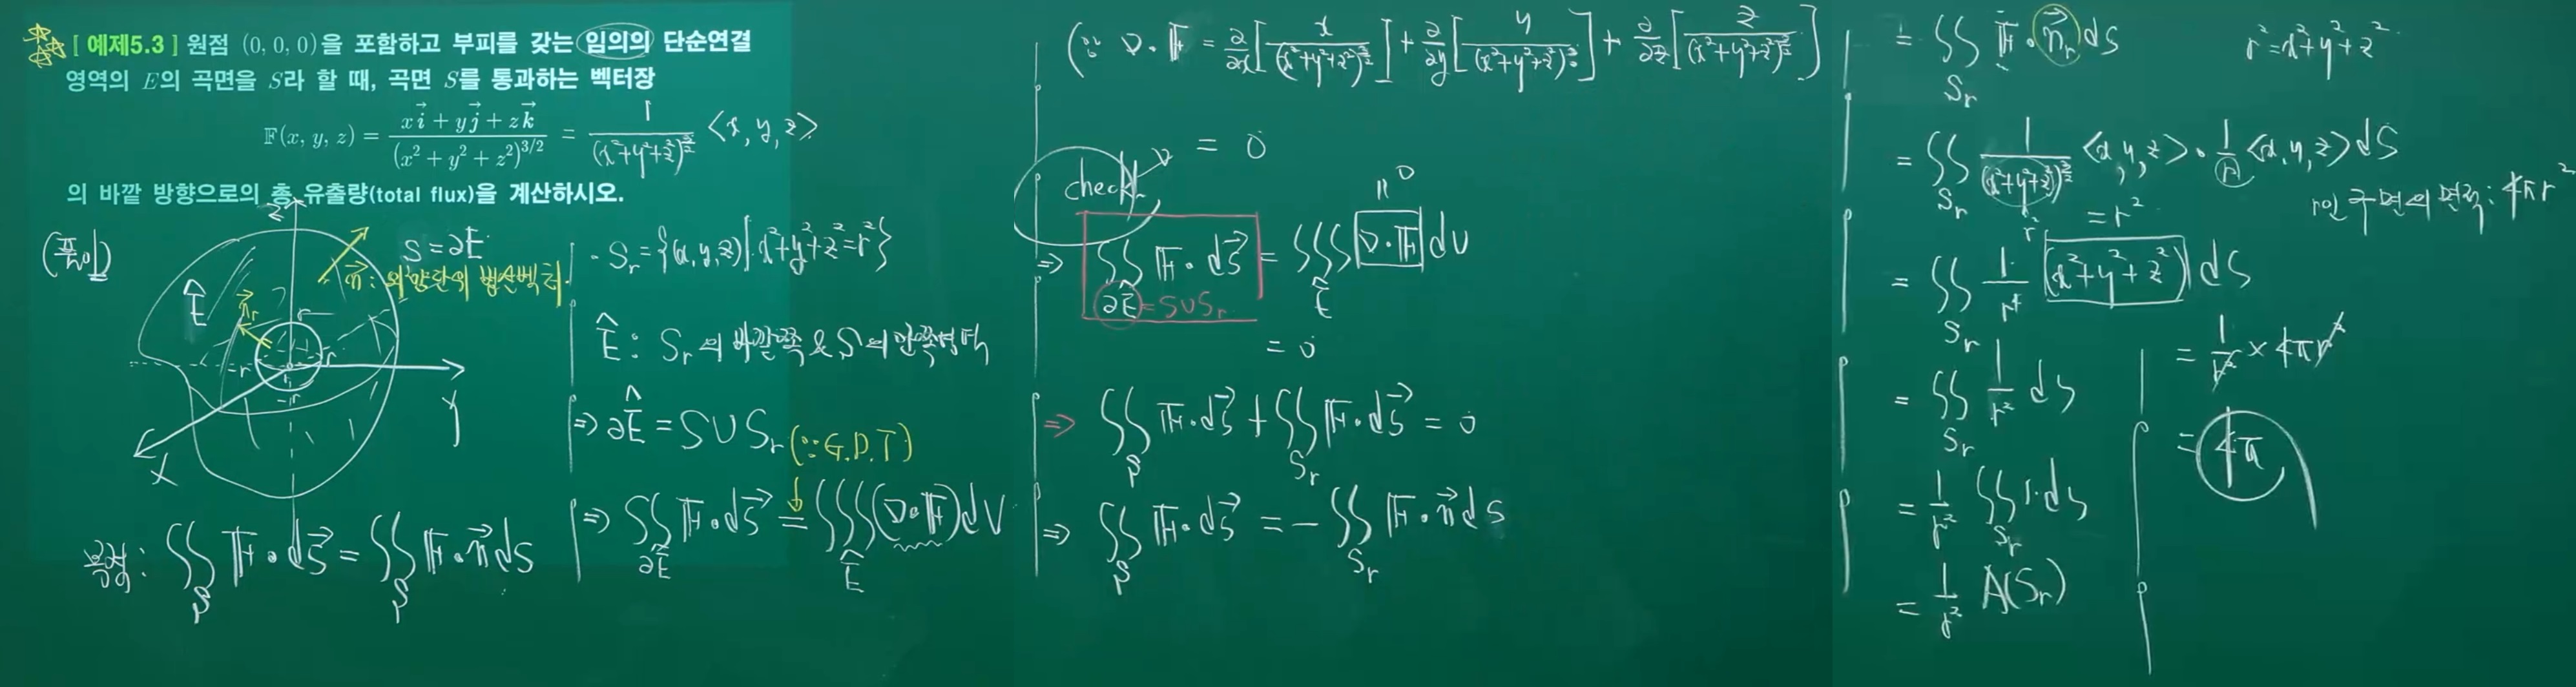 [ 예제5.3 ] 원점 (0, 0, 0)을 포함하고 부피를 갖는 임의의 단순연결
영역의 E의 곡면을 S라 할 때, 곡면 S를 통과하는 벡터장
𝔽(x, y, z) = (x i⃗ + y j⃗ + z k⃗)/(x² + y² + z²)^{3/2} = 1/(x²+y²+z²)^{3/2} <x, y, z>
의 바깥 방향으로의 총 유출량(total flux)을 계산하시오.
(풀이)
z
S = ∂E
n⃗: 외향단위법선벡터.
Ê
n⃗r
r
-r
-r
Y
X
목적: ∬_S 𝔽·dS⃗ = ∬_S 𝔽·n⃗ dS
· Sr = {(x, y, z) | x²+y²+z²=r²}
Ê : Sr의 바깥쪽 & S의 안쪽영역
⇒ ∂Ê = S∪Sr
(∵ G.D.T)
⇒ ∬_∂Ê 𝔽·dS⃗ = ∭_Ê (∇·𝔽) dV
(∵ ∇·𝔽 = ∂/∂x[x/(x²+y²+z²)^{3/2}] + ∂/∂y[y/(x²+y²+z²)^{3/2}] + ∂/∂z[z/(x²+y²+z²)^{3/2}]
= 0
check
⇒ ∬_{∂Ê=S∪Sr} 𝔽·dS⃗ = ∭_Ê ∇·𝔽 dV
= 0
⇒ ∬_S 𝔽·dS⃗ + ∬_Sr 𝔽·dS⃗ = 0
⇒ ∬_S 𝔽·dS⃗ = -∬_Sr 𝔽·n⃗ dS
= ∬_Sr 𝔽·n⃗r dS
r²=x²+y²+z²
= ∬_Sr 1/(x²+y²+z²)^{3/2} <x, y, z> · 1/r <x, y, z> dS
r인 구면의 면적: 4πr²
= r²
= ∬_Sr 1/r⁴ (x²+y²+z²) dS
= ∬_Sr 1/r² dS
= 1/r² ∬_Sr 1·dS
= 1/r² A(Sr)
= 1/r² × 4πr²
= 4π